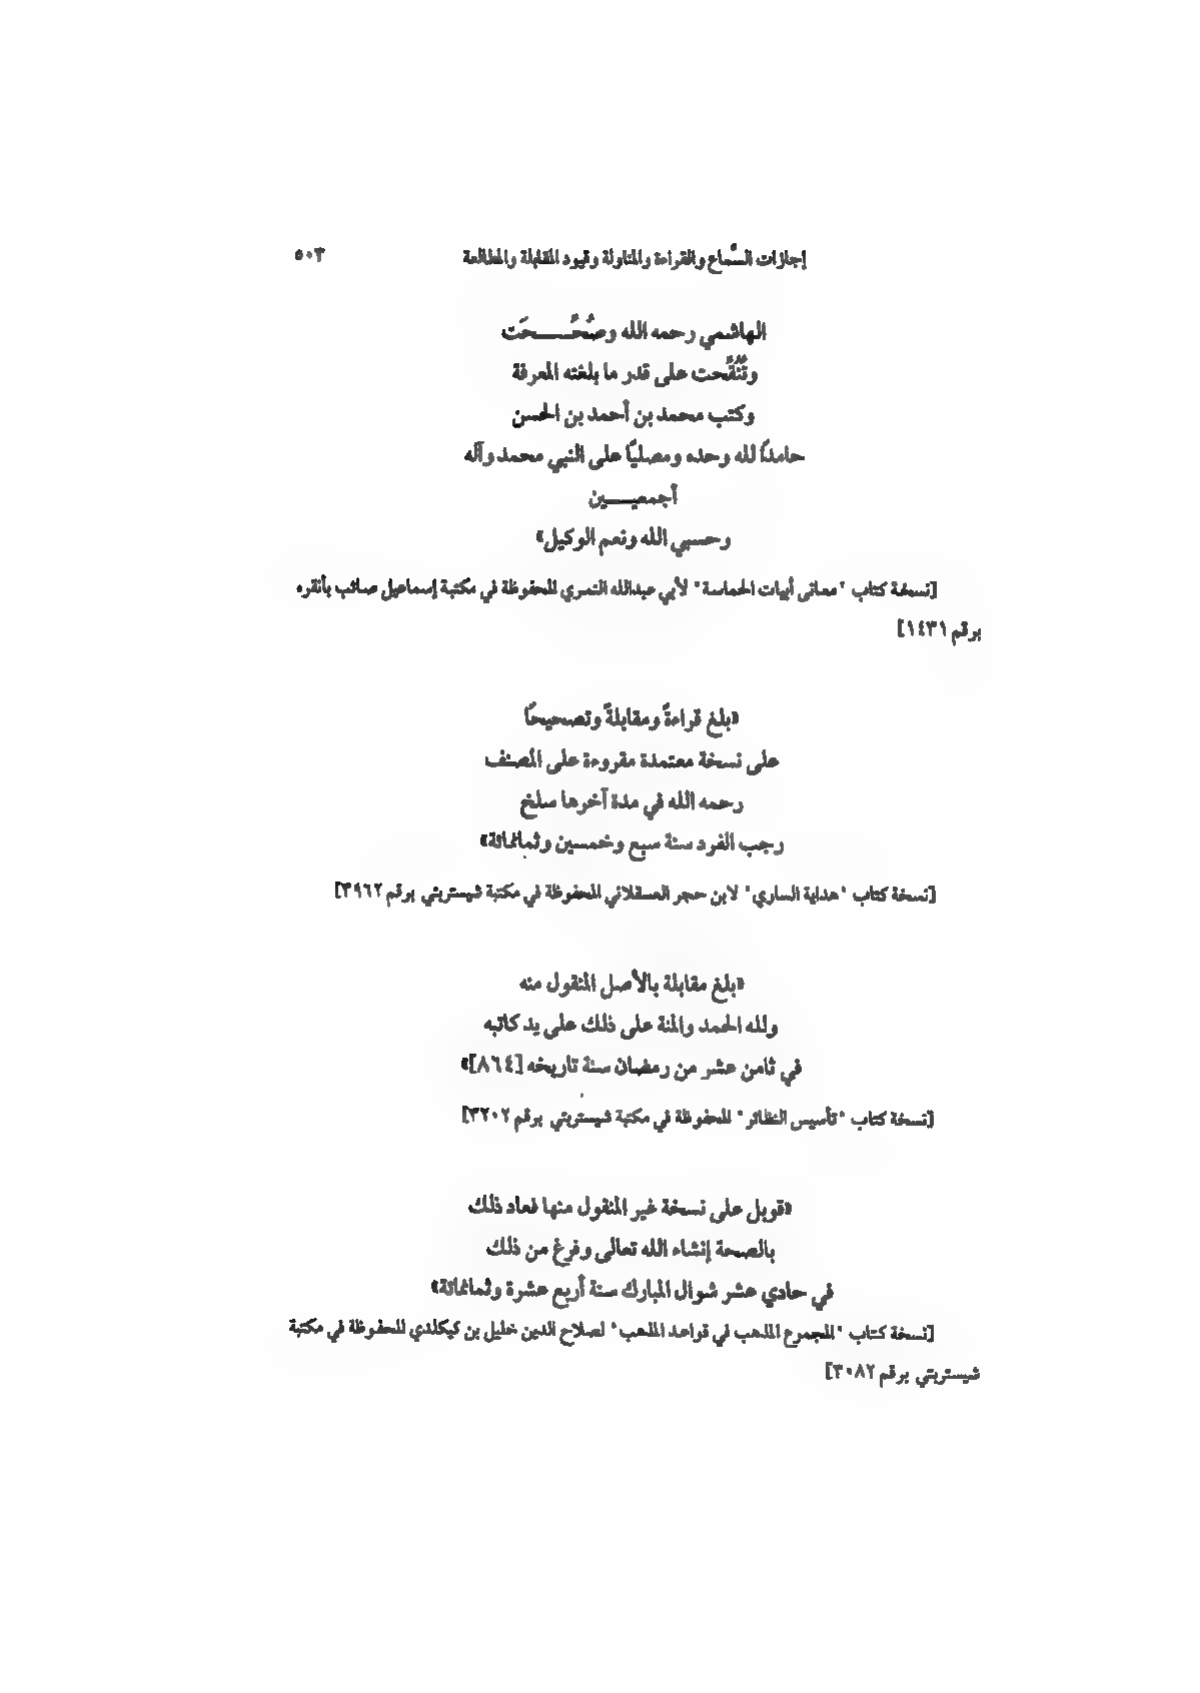 إجازات السَّماع والقراءة والمناولة وقيود المقابلة والمطالعة ٥٠٣
الهاشمي رحمه الله وصُحِّـــــحَت
ونُقِّحت على قدر ما بلغته المعرفة
وكتب محمد بن أحمد بن الحسن
حامدًا لله وحده ومصليًا على النبي محمد وآله
أجمعيـــــين
وحسبي الله ونعم الوكيل»
[نسخة كتاب "معاني أبيات الحماسة" لأبي عبدالله النمري المحفوظة في مكتبة إسماعيل صائب بأنقره
برقم ١٤٣١]
«بلغ قراءةً ومقابلةً وتصحيحًا
على نسخة معتمدة مقروءة على المُصنف
رحمه الله في مدة آخرها سلخ
رجب الفرد سنة سبع وخمسين وثمانمائة»
[نسخة كتاب "هداية الساري" لابن حجر العسقلاني المحفوظة في مكتبة شيستربتي برقم ٣٩٦٢]
«بلغ مقابلة بالأصل المنقول منه
ولله الحمد والمنة على ذلك على يد كاتبه
في ثامن عشر من رمضان سنة تاريخه [٨٦٤]»
[نسخة كتاب "تأسيس النظائر" المحفوظة في مكتبة شيستربتي برقم ٣٢٠٢]
«قوبل على نسخة غير المنقول منها فعاد ذلك
بالصحة إنشاء الله تعالى وفرغ من ذلك
في حادي عشر شوال المبارك سنة أربع عشرة وثمانمائة»
[نسخة كتاب "المجموع المذهب في قواعد المذهب" لصلاح الدين خليل بن كيكلدي المحفوظة في مكتبة
شيستربتي برقم ٣٠٨٢]